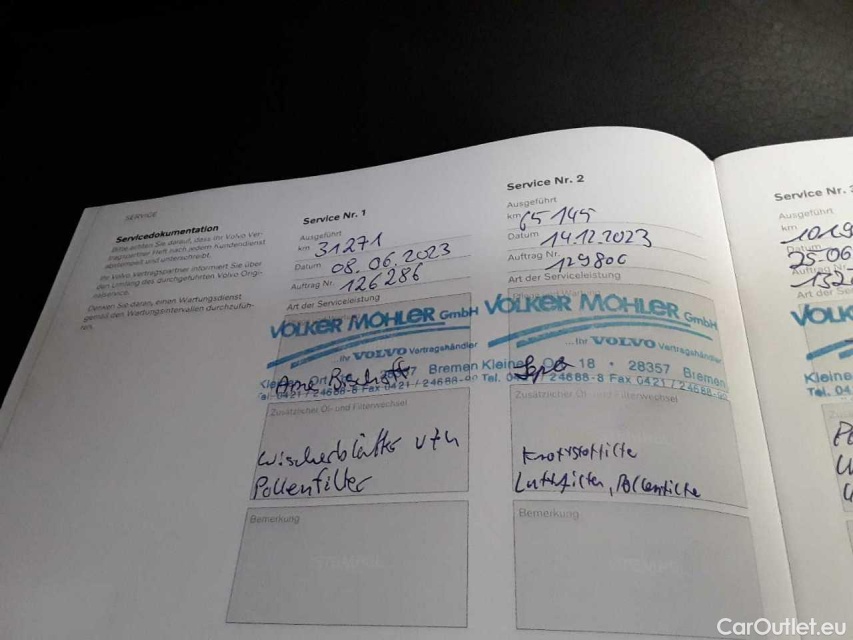 SERVICE
Servicedokumentation
Bitte achten Sie darauf, dass Ihr Volvo Ver-
tragspartner Heft nach jedem Kundendienst
abstempelt und unterschreibt.
Ihr Volvo Vertragspartner informiert Sie über
den Umfang des durchgeführten Volvo Origi-
nalservice.
Denken Sie daran, einen Wartungsdienst
gemäß den Wartungsintervallen durchzufüh-
ren.
Service Nr. 1
Ausgeführt
km 31271
Datum 08.06.2023
Auftrag Nr. 126286
Art der Serviceleistung
VOLKER MÖHLER GmbH
...Ihr VOLVO Vertragshändler
Bremen
Tel. 0421 / 24688-8 Fax 0421 / 24688-90
Zusätzlicher Öl- und Filterwechsel
Wischerblätter v+h
Pollenfilter
Bemerkung
Service Nr. 2
Ausgeführt
km 65 145
Datum 14.12.2023
Auftrag Nr. 129806
Art der Serviceleistung
VOLKER MÖHLER GmbH
...Ihr VOLVO Vertragshändler
Kleiner Ort 18 · 28357 Bremen
Tel. 0421 / 24688-8 Fax 0421 / 24688-90
Zusätzlicher Öl- und Filterwechsel
Kraftstofffilter
Luftfilter, Pollenfilter
Bemerkung
Service Nr. 3
Ausgeführt
km
Datum
Auftrag Nr.
Kleine
Tel. 04
CarOutlet.eu